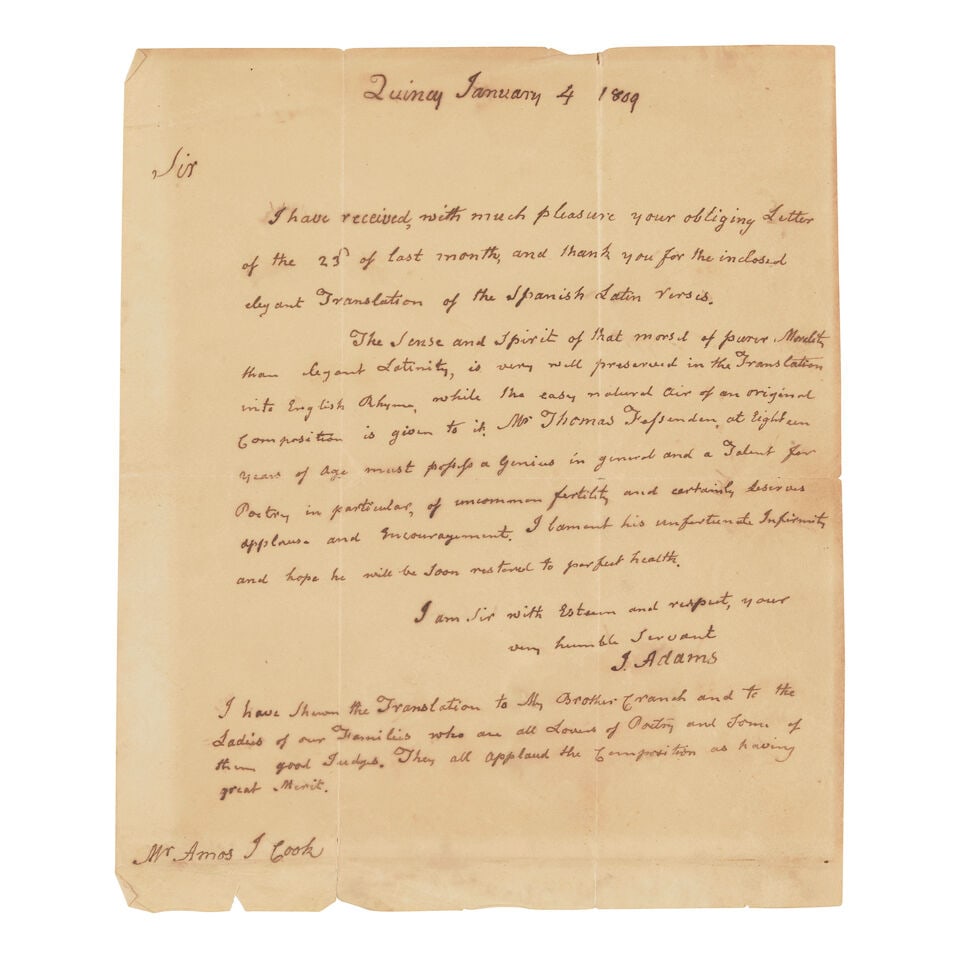 Quincy January 4 1809
Sir
I have received, with much pleasure your obliging Letter
of the 23d of last month, and thank you for the inclosed
elegant Translation of the Spanish Latin Verses.
The Sense and Spirit of that morsel of purer Morality
than elegant Latinity, is very well preserved in the Translation
into English Rhyme, while the easy natural air of an original
Composition is given to it. Mr Thomas Fessenden, at Eighteen
years of Age must possess a Genius in general and a Talent for
Poetry in particular, of uncommon fertility and certainly deserves
applause and Encouragement. I lament his unfortunate Infirmity
and hope he will be soon restored to perfect health.
I am Sir with Esteem and respect, your
very humble Servant
J. Adams
I have shewn the Translation to My Brother Cranch and to the
Ladies of our Families who are all Lovers of Poetry and some of
them good Judges. They all applaud the Composition as having
great Merit.
Mr Amos J Cook